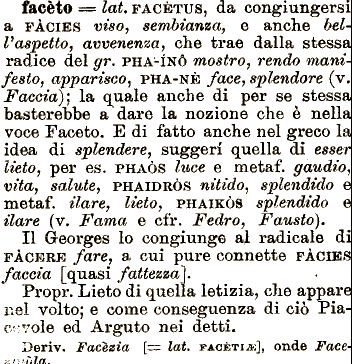 facèto = lat. FACÈTUS, da congiungersi
a FÀCIES viso, sembianza, e anche bel-
l'aspetto, avvenenza, che trae dalla stessa
radice del gr. PHA-ÍNÔ mostro, rendo mani-
festo, apparisco, PHA-NÈ face, splendore (v.
Faccia); la quale anche di per se stessa
basterebbe a dare la nozione che è nella
voce Faceto. E di fatto anche nel greco la
idea di splendere, suggerí quella di esser
lieto, per es. PHAÒS luce e metaf. gaudio,
vita, salute, PHAIDRÒS nitido, splendido e
metaf. ilare, lieto, PHAIKÒS splendido e
ilare (v. Fama e cfr. Fedro, Fausto).
Il Georges lo congiunge al radicale di
FÀCERE fare, a cui pure connette FÀCIES
faccia [quasi fattezza].
Propr. Lieto di quella letizia, che appare
nel volto; e come conseguenza di ciò Pia-
cevole ed Arguto nei detti.
Deriv. Facèzia [= lat. FACÈTIÆ], onde Face-